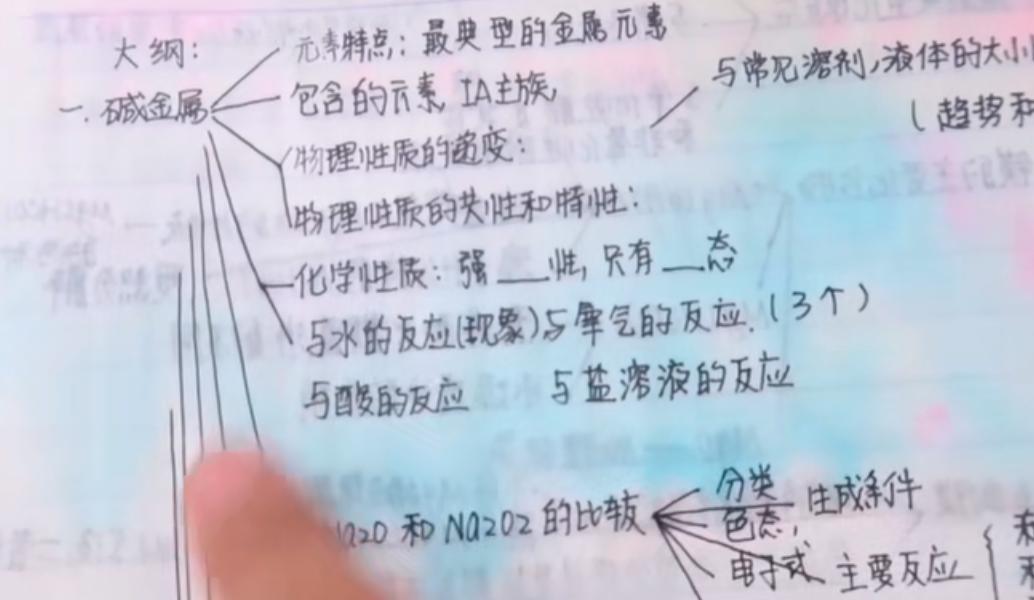 大纲:
一.碱金属
元素特点:最典型的金属元素
包含的元素,IA主族,
物理性质的递变:
与常见溶剂,液体的大小
(趋势和
物理性质的共性和特性:
化学性质:强__性,只有__态
与水的反应(现象)与氧气的反应.(3个)
与酸的反应 与盐溶液的反应
Na2O和Na2O2的比较
分类
色态,
生成条件
电子式
主要反应